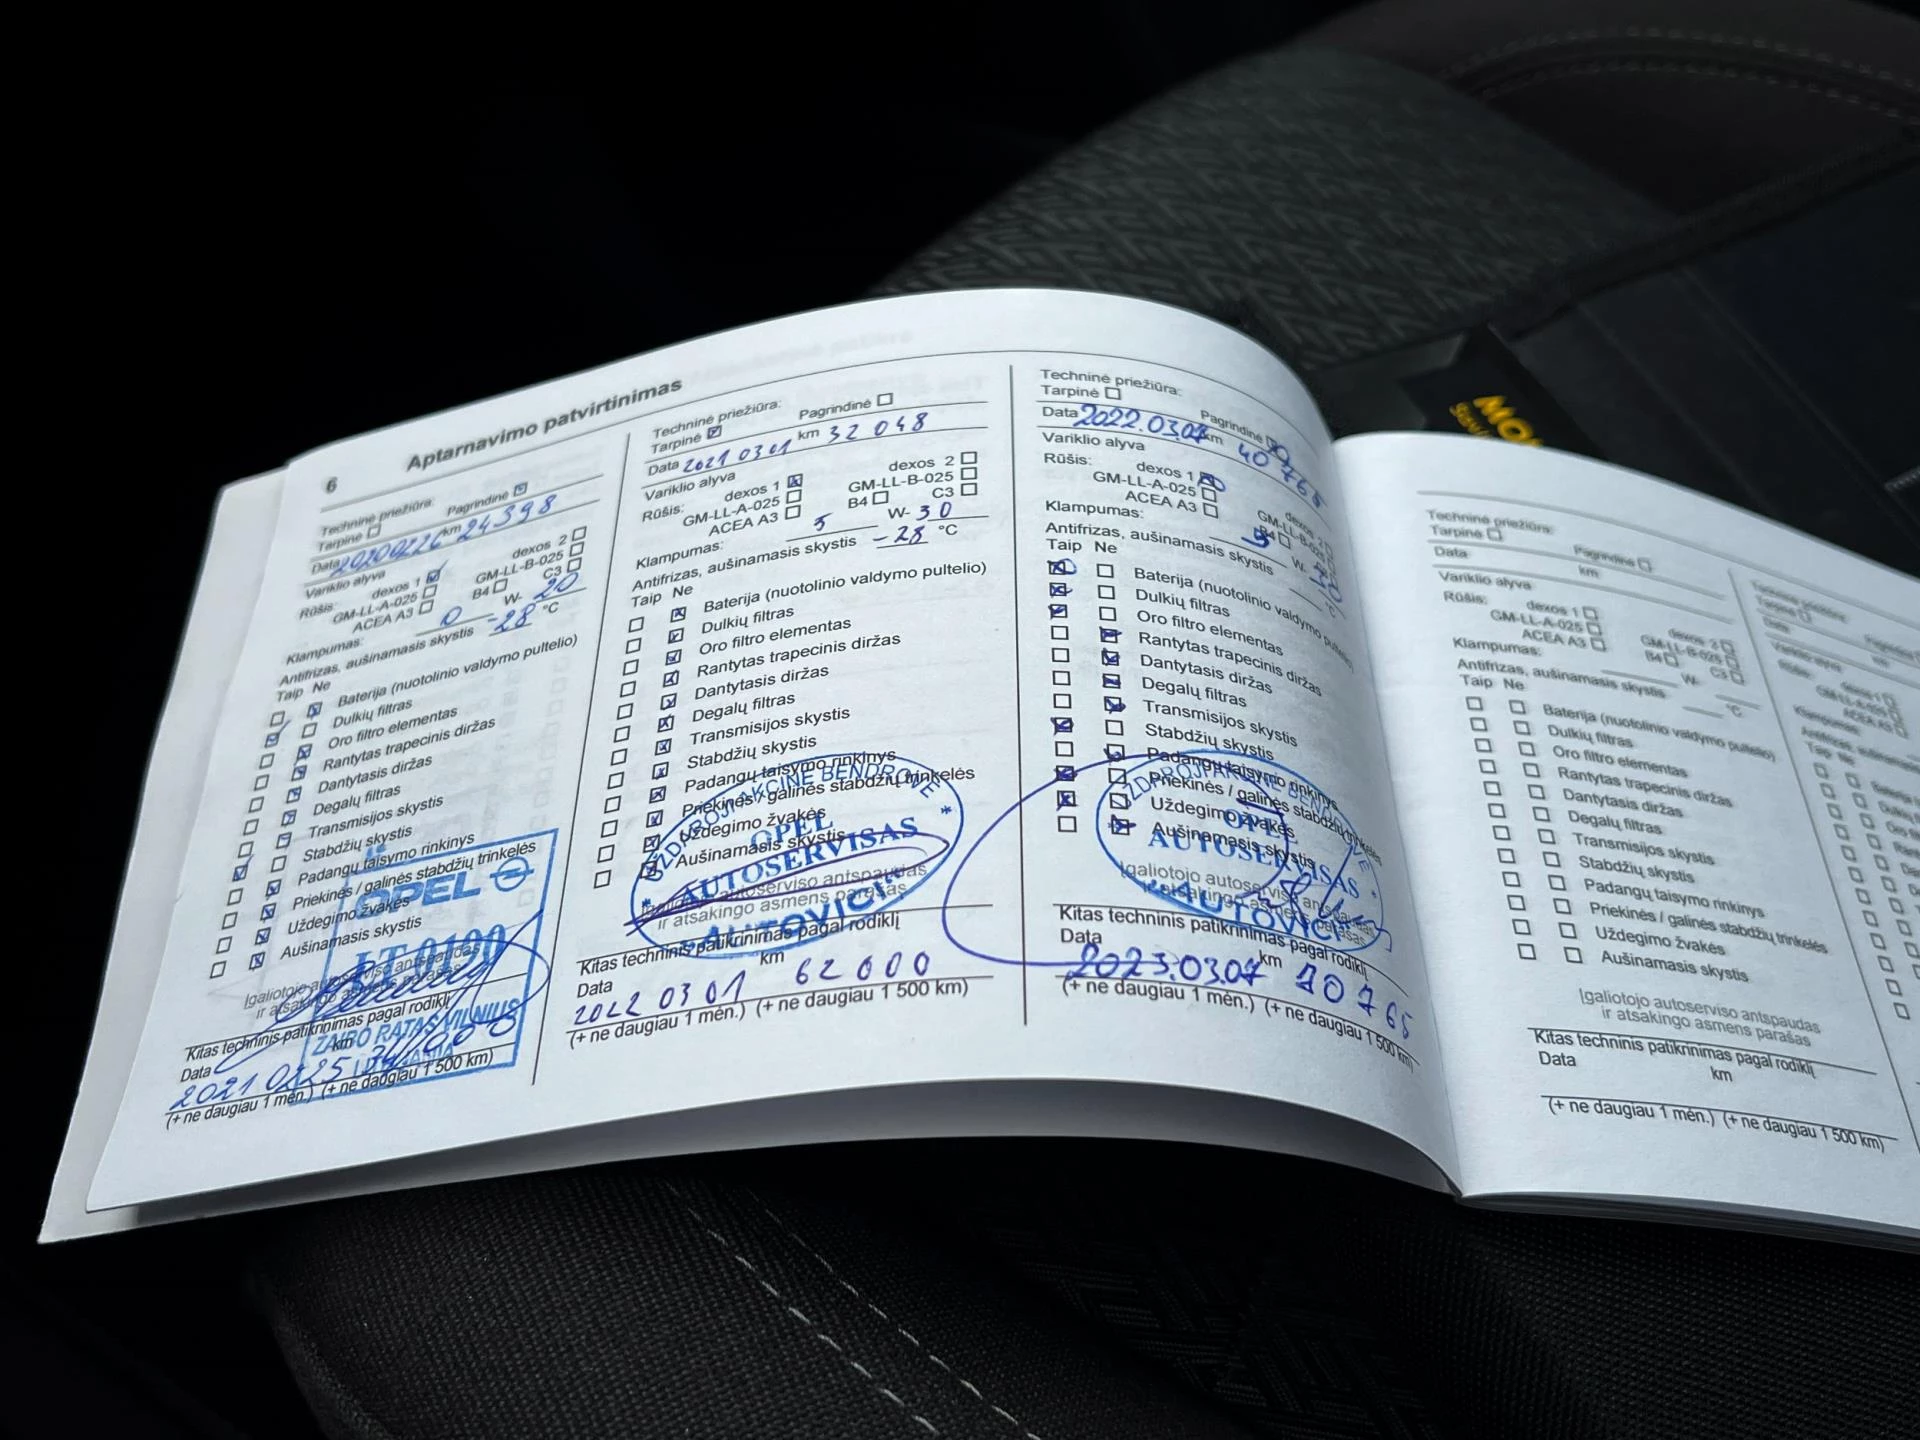 6 Aptarnavimo patvirtinimas
Techninė priežiūra:
Tarpinė Pagrindinė
Data 20200226 km 24398
Variklio alyva
Rūšis: dexos 1 dexos 2
GM-LL-A-025 GM-LL-B-025
ACEA A3 B4 C3
Klampumas: 0 W- 20
Antifrizas, aušinamasis skystis -28 °C
Taip Ne
Baterija (nuotolinio valdymo pultelio)
Dulkių filtras
Oro filtro elementas
Rantytas trapecinis diržas
Dantytasis diržas
Degalų filtras
Transmisijos skystis
Stabdžių skystis
Padangų taisymo rinkinys
Priekinės / galinės stabdžių trinkelės
Uždegimo žvakės
Aušinamasis skystis
OPEL
LT 0100
ZAIBO RATAS VILNIUS
Įgaliotojo autoserviso antspaudas
ir atsakingo asmens parašas
Kitas techninis patikrinimas pagal rodiklį
Data km
2021 0225
(+ ne daugiau 1 mėn.) (+ ne daugiau 1 500 km)
Techninė priežiūra:
Tarpinė Pagrindinė
Data 2021 03 01 km 32 048
Variklio alyva
Rūšis: dexos 1 dexos 2
GM-LL-A-025 GM-LL-B-025
ACEA A3 B4 C3
Klampumas: 5 W- 30
Antifrizas, aušinamasis skystis -28 °C
Taip Ne
Baterija (nuotolinio valdymo pultelio)
Dulkių filtras
Oro filtro elementas
Rantytas trapecinis diržas
Dantytasis diržas
Degalų filtras
Transmisijos skystis
Stabdžių skystis
Padangų taisymo rinkinys
Priekinės / galinės stabdžių trinkelės
Uždegimo žvakės
Aušinamasis skystis
UŽDAROJI AKCINĖ BENDROVĖ
OPEL
AUTOSERVISAS
Įgaliotojo autoserviso antspaudas
ir atsakingo asmens parašas
Kitas techninis patikrinimas pagal rodiklį
Data km
2022 03 01 62 000
(+ ne daugiau 1 mėn.) (+ ne daugiau 1 500 km)
Techninė priežiūra:
Tarpinė Pagrindinė
Data 2022.03.07 km 40 765
Variklio alyva
Rūšis: dexos 1 dexos 2
GM-LL-A-025 GM-LL-B-025
ACEA A3 B4
Klampumas: 5 W- 30
Antifrizas, aušinamasis skystis °C
Taip Ne
Baterija (nuotolinio valdymo pultelio)
Dulkių filtras
Oro filtro elementas
Rantytas trapecinis diržas
Dantytasis diržas
Degalų filtras
Transmisijos skystis
Stabdžių skystis
Padangų taisymo rinkinys
Priekinės / galinės stabdžių trinkelės
Uždegimo žvakės
Aušinamasis skystis
OPEL
AUTOSERVISAS
Įgaliotojo autoserviso antspaudas
ir atsakingo asmens parašas
Kitas techninis patikrinimas pagal rodiklį
Data km
2023.03.07 70 765
(+ ne daugiau 1 mėn.) (+ ne daugiau 1 500 km)
Techninė priežiūra:
Tarpinė Pagrindinė
Data km
Variklio alyva
Rūšis: dexos 1 dexos 2
GM-LL-A-025 GM-LL-B-025
ACEA A3 B4 C3
Klampumas: W-
Antifrizas, aušinamasis skystis °C
Taip Ne
Baterija (nuotolinio valdymo pultelio)
Dulkių filtras
Oro filtro elementas
Rantytas trapecinis diržas
Dantytasis diržas
Degalų filtras
Transmisijos skystis
Stabdžių skystis
Padangų taisymo rinkinys
Priekinės / galinės stabdžių trinkelės
Uždegimo žvakės
Aušinamasis skystis
Įgaliotojo autoserviso antspaudas
ir atsakingo asmens parašas
Kitas techninis patikrinimas pagal rodiklį
Data km
(+ ne daugiau 1 mėn.) (+ ne daugiau 1 500 km)